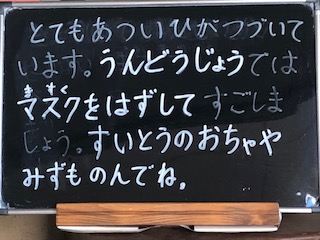 とてもあついひがつづいて
います。うんどうじょうでは
マスクをはずして すごしま
しょう。すいとうのおちゃや
みずものんでね。